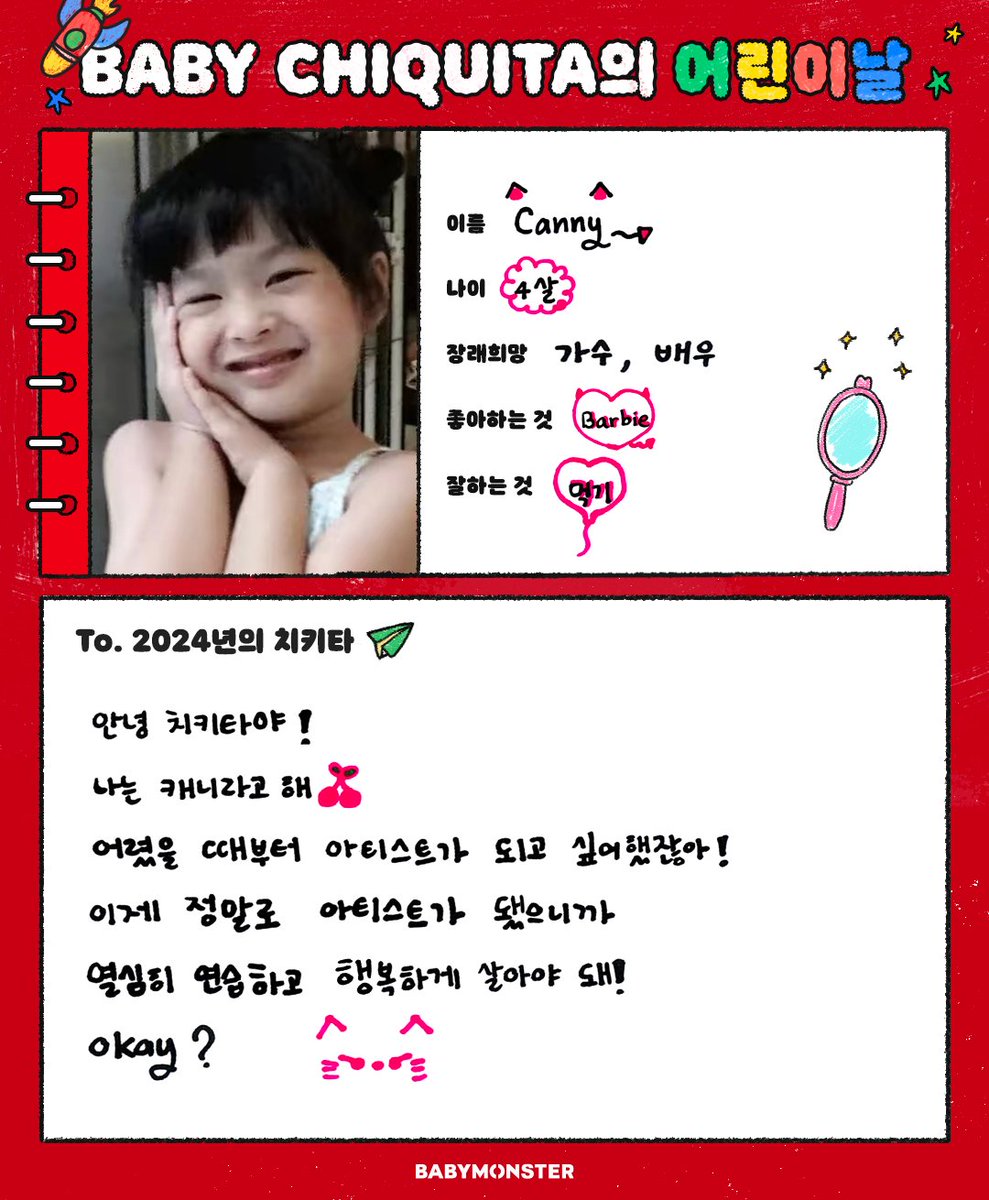 BABY CHIQUITA의 어린이날
이름 Canny
나이 4살
장래희망 가수, 배우
좋아하는 것 Barbie
잘하는 것 먹기
To. 2024년의 치키타
안녕 치키타야!
나는 캐니라고 해
어렸을 때부터 아티스트가 되고 싶어했잖아!
이제 정말로 아티스트가 됐으니까
열심히 연습하고 행복하게 살아야 돼!
okay?
BABYMONSTER